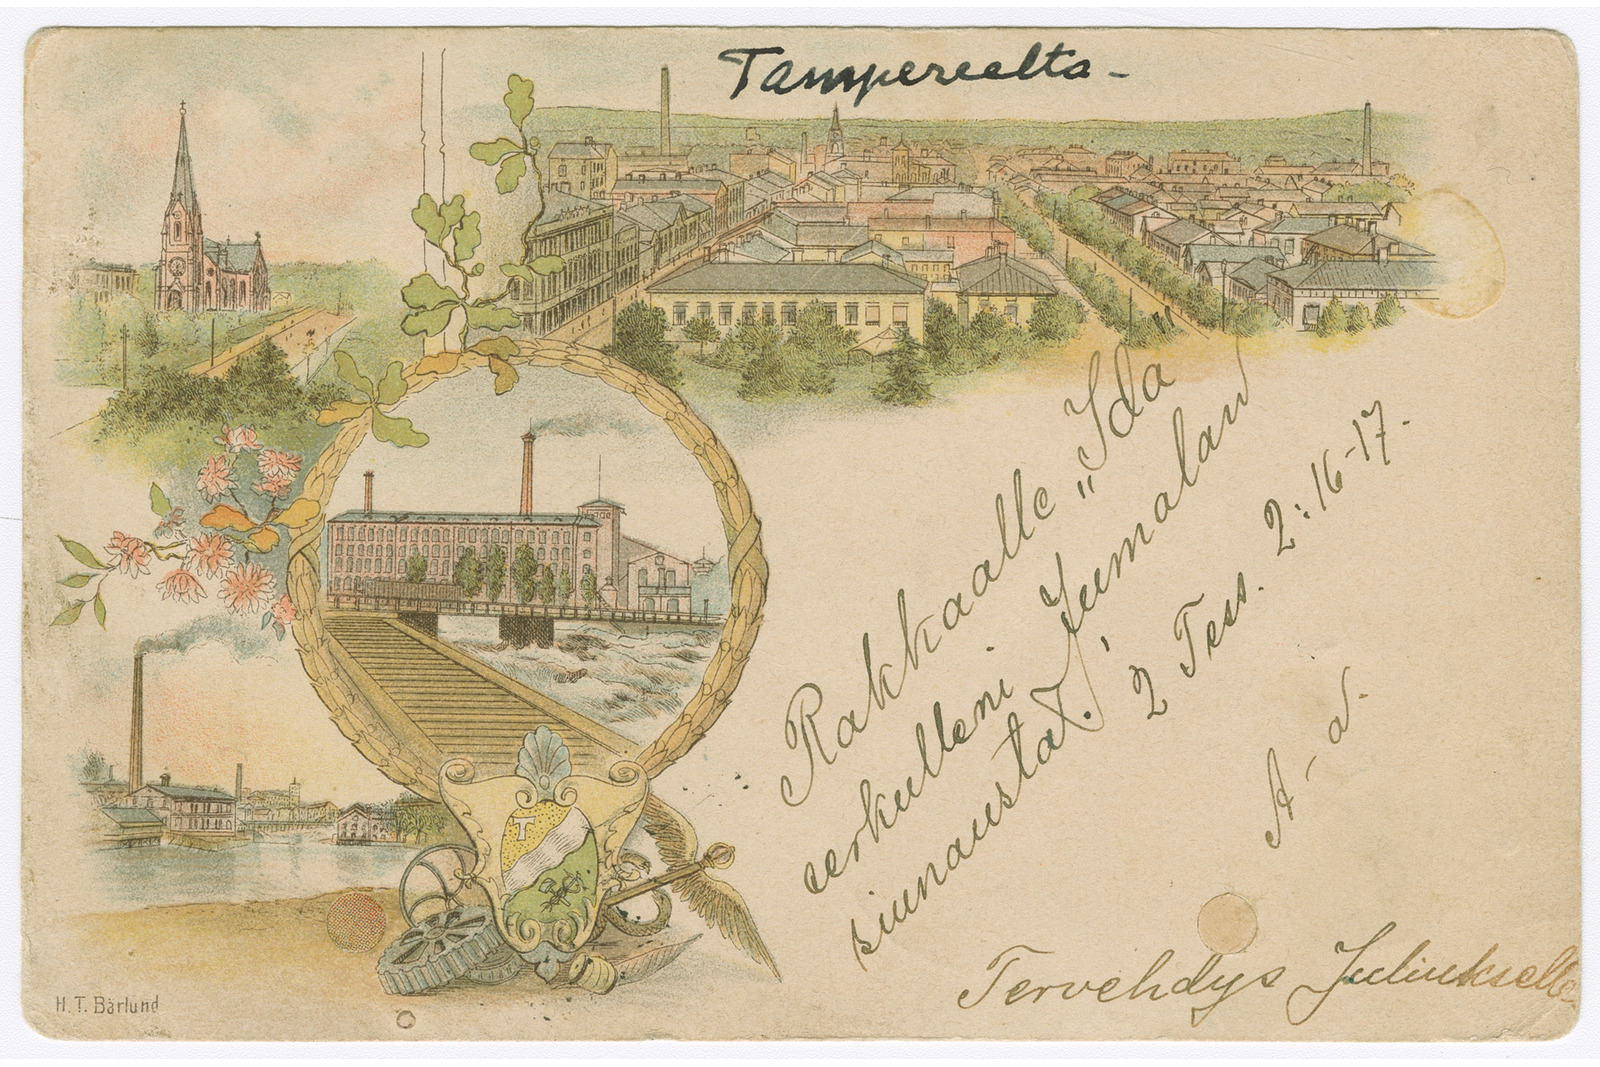 Tampereelta -
Rakkaalle „Ida"
serkulleni Jumalan
siunausta.! 2 Tess. 2:16-17.
A-a.
Tervehdys Juliukselle
T
H. T. Bärlund